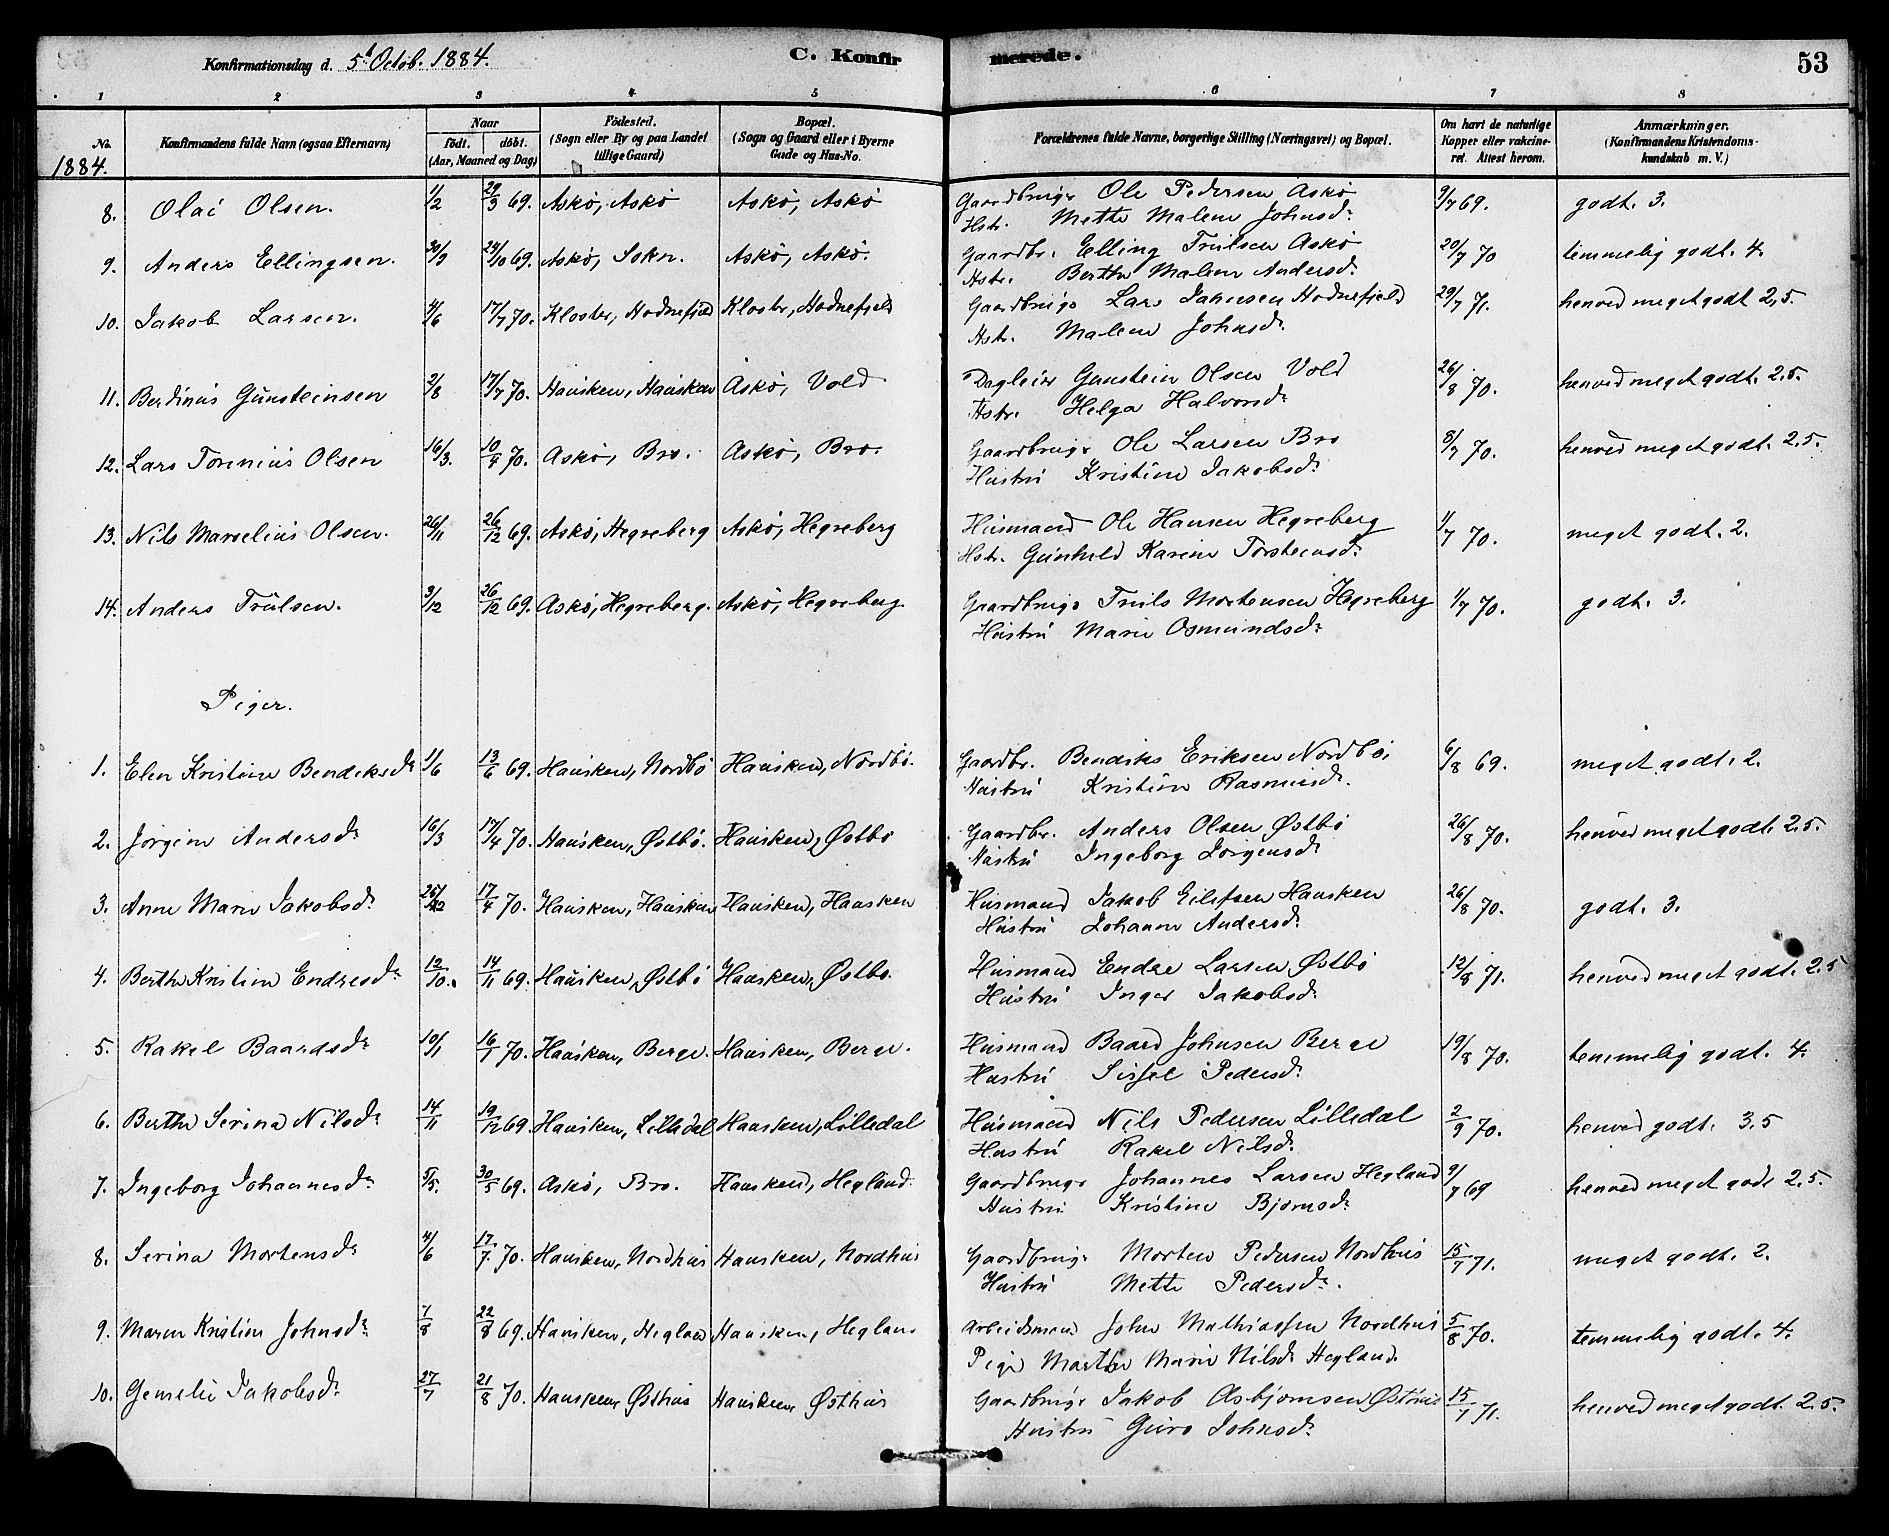 Konfirmationsdag d. 5t Octob. 1884.
C. Konfir
merede.
53
1 2 3 4 5 6 7 8
No.
Konfirmandens fulde Navn (ogsaa Efternavn)
Naar
födt. döbt.
(Aar, Maaned og Dag)
Födested.
(Sogn eller By og paa Landet
tillige Gaard)
Bopæl.
(Sogn og Gaard eller i Byerne
Gade og Hus-No.
Forældrenes fulde Navne, borgerlige Stilling (Næringsvei) og Bopæl.
Om havt de naturlige
Kopper eller vakcine-
ret. Attest herom.
Anmærkninger.
(Konfirmandens Kristendoms-
kundskab m. V.)
1884.
8. Olai Olsen. 1/2 29/3 69. Askö, Askö Askö, Askö Gaardbruger Ole Pedersen Askö 9/7 69. godt. 3.
Hstr. Mette Malene Johnsdr
9. Anders Ellingsen. 30/9 24/10 69. Askö, Sokn. Askö, Askö. Gaardbr. Elling Trulsen Askö 20/7 70 temmelig godt. 4.
Hstr. Berthe Malene Andersdr
10. Jakob Larsen. 4/6 17/7 70. Kloster, Hodnefjeld Kloster, Hodnefjeld Gaardbruger Lars Jakobsen Hodnefjeld 29/7 71. henved meget godt 2,5.
Hstr. Malene Johnsdr
11. Berdinus Gunsteinsen 2/8 17/7 70. Hausken, Hausken Askö, Vold Dagleier Gunstein Olsen Vold 26/8 70. henved meget godt. 2.5.
Hstr. Helga Halvorsdr
12. Lars Torenius Olsen 16/3. 10/4 70. Askö, Bro. Askö, Bro. Gaardbruger Ole Larsen Bro 8/7 70. henved meget godt. 2.5.
Hustru Kristine Jakobsdr
13. Nils Marselius Olsen. 26/11 26/12 69. Askö, Hegreberg Askö, Hegreberg Husmand Ole Hansen Hegreberg 1/7 70. meget godt. 2.
Hstr. Gunhild Karine Torsteinsdr
14. Anders Trulsen. 3/12 26/12 69. Askö, Hegreberg. Askö, Hegreberg Gaardbruger Truls Mortensen Hegreberg 1/7 70. godt. 3.
Hustru Marie Osmundsdr
Piger.
1. Elen Kristine Bendiksdr 1/6 13/6 69. Hausken, Nordbö Hausken, Nordbö. Gaardbr. Bendiks Eriksen Nordbö, 6/8 69. meget godt. 2.
Hustru Kristine Rasmusdr.
2. Jörgine Andersdr 16/3 17/4 70. Hausken, Østbö. Hausken, Østbö Gaardbr. Anders Olsen Østbö 26/8 70. henved meget godt. 2.5.
Hustru Ingeborg Jörgensdr
3. Anne Marie Jakobsdr 17/4 70. Hausken, Hausken Hausken, Hausken Husmand Jakob Eilefsen Hausken 26/8 70. godt. 3.
Hustru Johanne Andersdr
4. Berthe Kristine Endresdr 12/10. 14/11 69. Hausken, Østbö Hausken, Østbö. Husmand Endre Larsen Østbö 12/8 71. henved meget godt. 2.5
Hustru Inger Jakobsdr
5. Rakel Baardsdr 10/1 16/1 70. Hausken, Berge. Hausken, Berge. Husmand Baard Johnsen Berge 19/8 70. temmelig godt. 4.
Hustru Sissel Pedersdr
6. Berthe Serina Nilsdr 14/11 19/12 69. Hausken, Lilledal Hausken, Lilledal Husmand Nils Pedersen Lilledal 2/9 70. henved godt. 3.5
Hustru Rakel Nilsdr
7. Ingeborg Johannesdr 5/5. 30/5 69. Askö, Bro. Hausken, Hegland. Gaardbruger Johannes Larsen Hegland 9/7 69 henved meget godt 2.5.
Hustru Kristine Bjornsdr
8. Serina Mortensdr 4/6 17/7. 70. Hausken, Nordhus Hausken, Nordhus Gaardbrug. Morten Pedersen Nordhus 15/7 71. meget godt. 2.
Hustru Mette Pedersdr.
9. Maren Kristine Johnsdr 7/8 22/8 69. Hausken, Hegland Hausken, Hegland Arbeidsmand John Mathiassen Nordhus 5/8 70. temmelig godt. 4.
Pige Marthe Marie Nilsdr Hegland.
10. Gemelie Jakobsdr 27/7 21/8 70. Hausken, Østhus Hausken, Østhus Gaardbruger Jakob Asbjornsen Østhus 15/7 71. henved meget godt. 2.5.
Hustru Guro Johnsdr